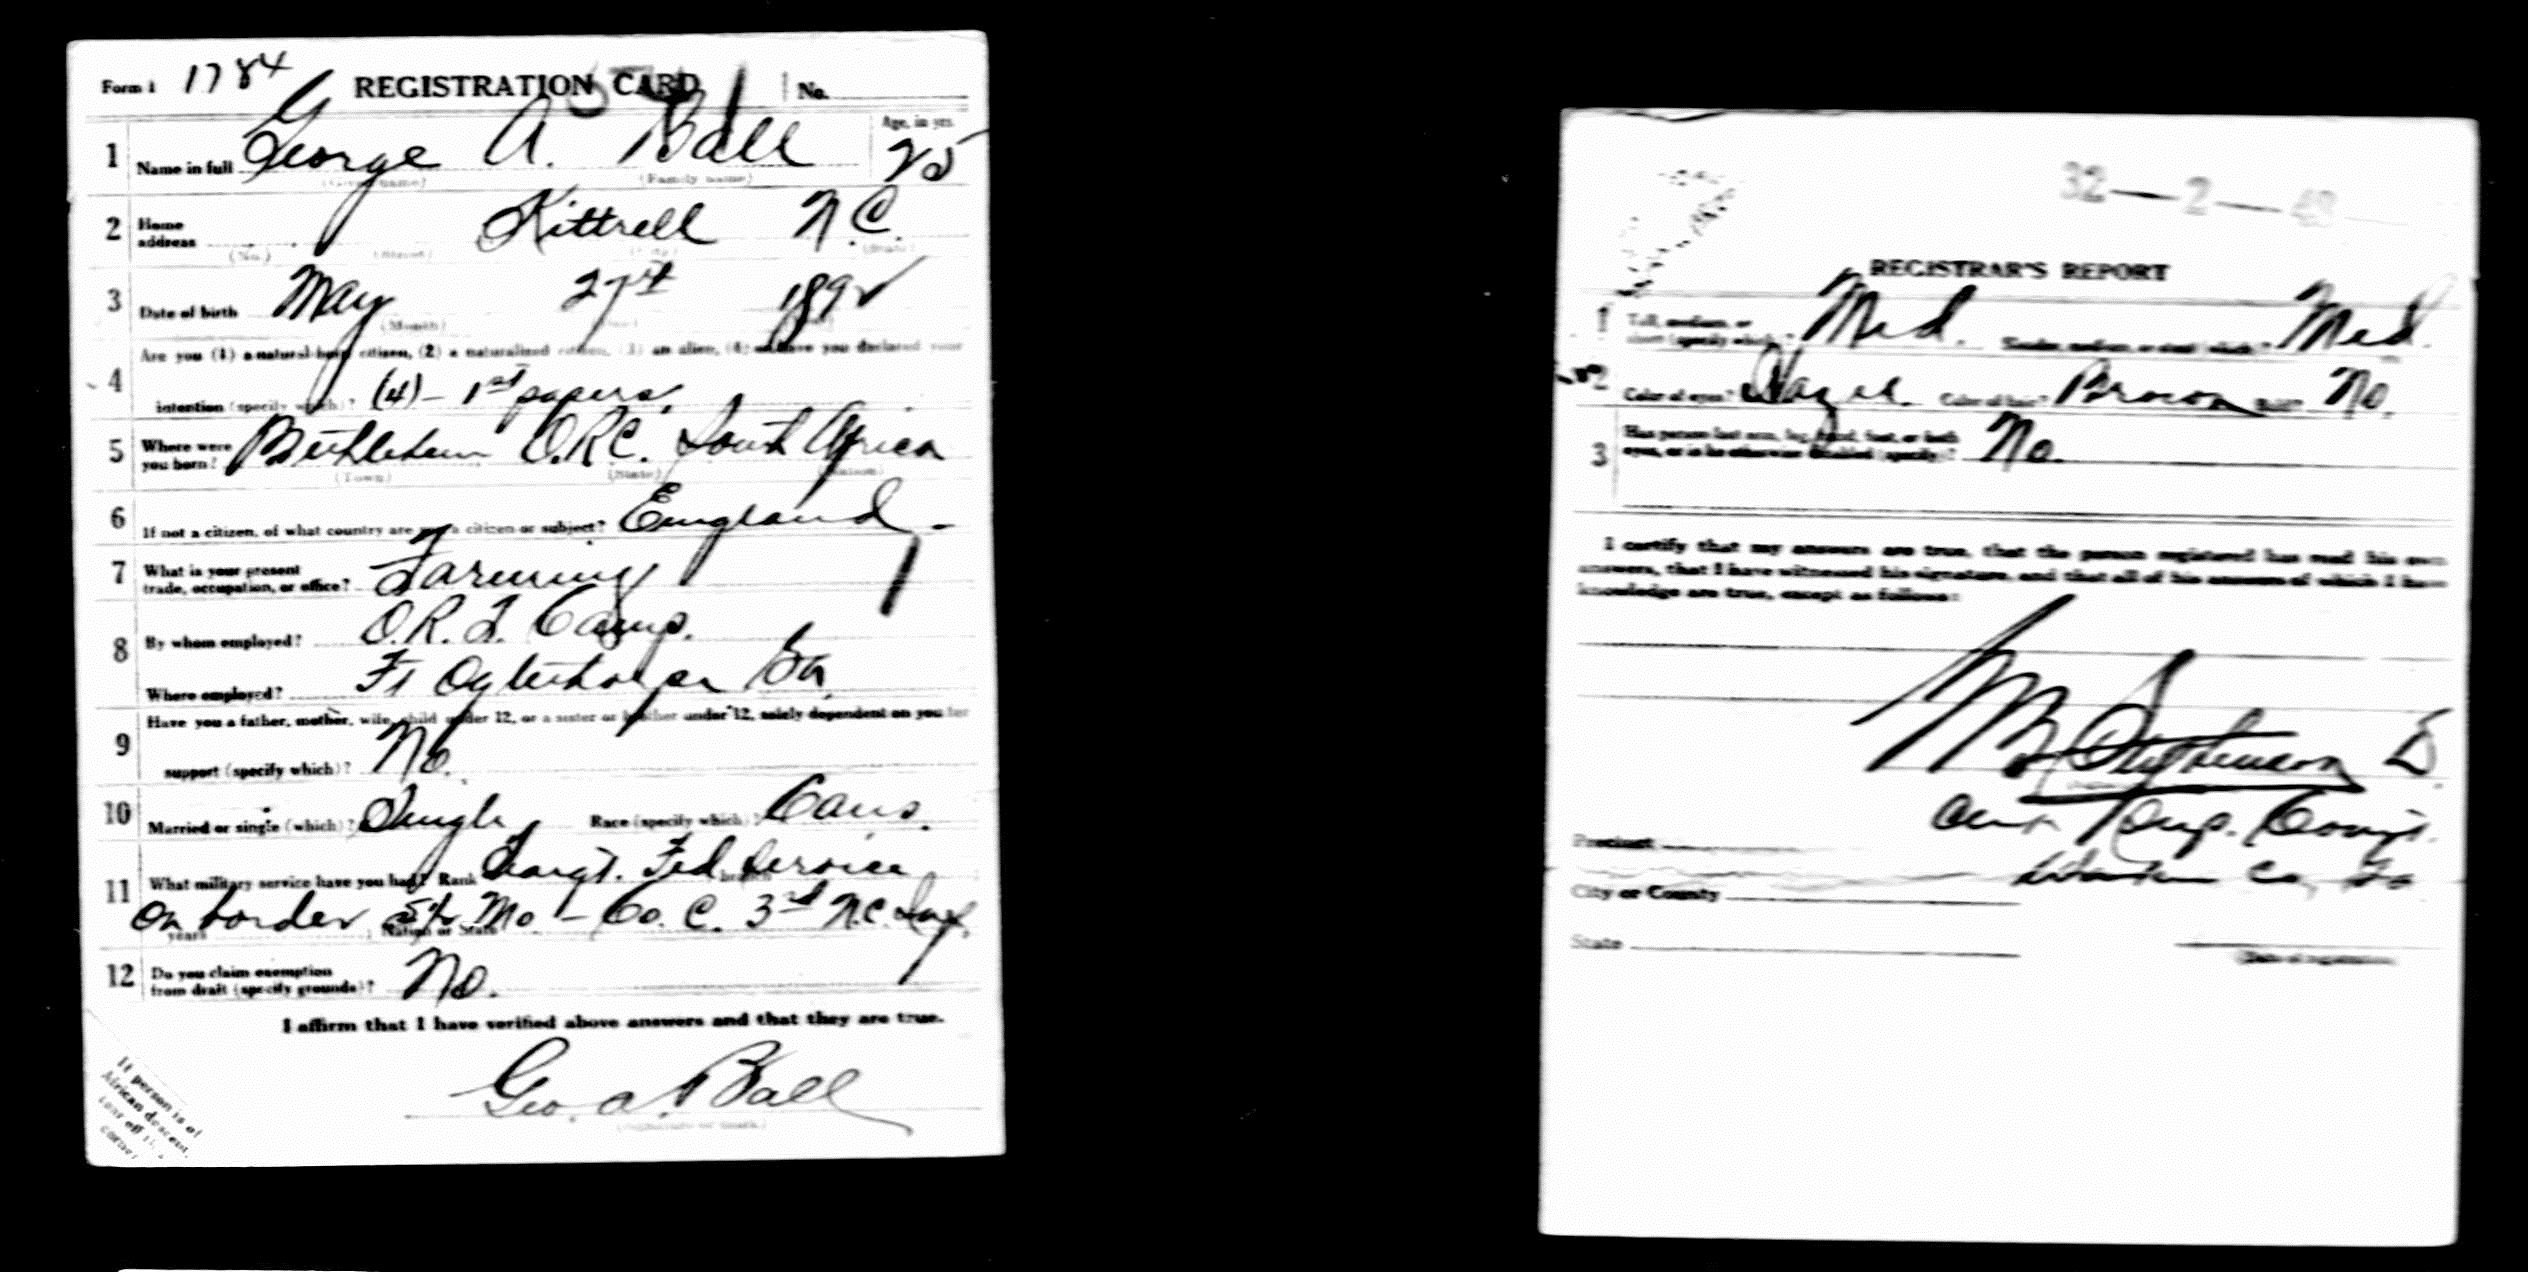 Form 1 1784 REGISTRATION CARD No.
1 Name in full George A. Ball Age, in yrs. 25
(Given name) (Family name)
2 Home address Kittrell N.C.
(No.) (Street) (City) (State)
3 Date of birth May 27st 1892
(Month) (Day)
4 Are you (1) a natural-born citizen, (2) a naturalized citizen, (3) an alien, (4) or have you declared your
intention (specify which)? (4) - 1st papers.
5 Where were you born? Bethlehem O.R.C. South Africa
(Town) (State) (Nation)
6 If not a citizen, of what country are you a citizen or subject? England.
7 What is your present trade, occupation, or office? Farming
8 By whom employed? O.R.T. Camp.
Where employed? Ft Oglethorpe Ga.
9 Have you a father, mother, wife, child under 12, or a sister or brother under 12, solely dependent on you for
support (specify which)? No.
10 Married or single (which)? Single Race (specify which)? Caus.
11 What military service have you had? Rank Sargt. branch Fed. Service
years on border 5½ Mo - Nation or State Co. C. 3rd N.C. Inf.
12 Do you claim exemption from draft (specify grounds)? No.
I affirm that I have verified above answers and that they are true.
Geo. A. Ball
(Signature or mark)
If person is of
African descent,
tear off this
corner
32—2—48
REGISTRAR'S REPORT
1 Tall, medium, or short (specify which)? Med. Slender, medium, or stout (which)? Med.
2 Color of eyes? Hazel. Color of hair? Brown Bald? No.
3 Has person lost arm, leg, hand, foot, or both
eyes, or is he otherwise disabled (specify)? No.
I certify that my answers are true, that the person registered has read his own
answers, that I have witnessed his signature, and that all of his answers of which I have
knowledge are true, except as follows:
Stephenson
Precinct
City or County Co, Ga
State
(Date of registration)